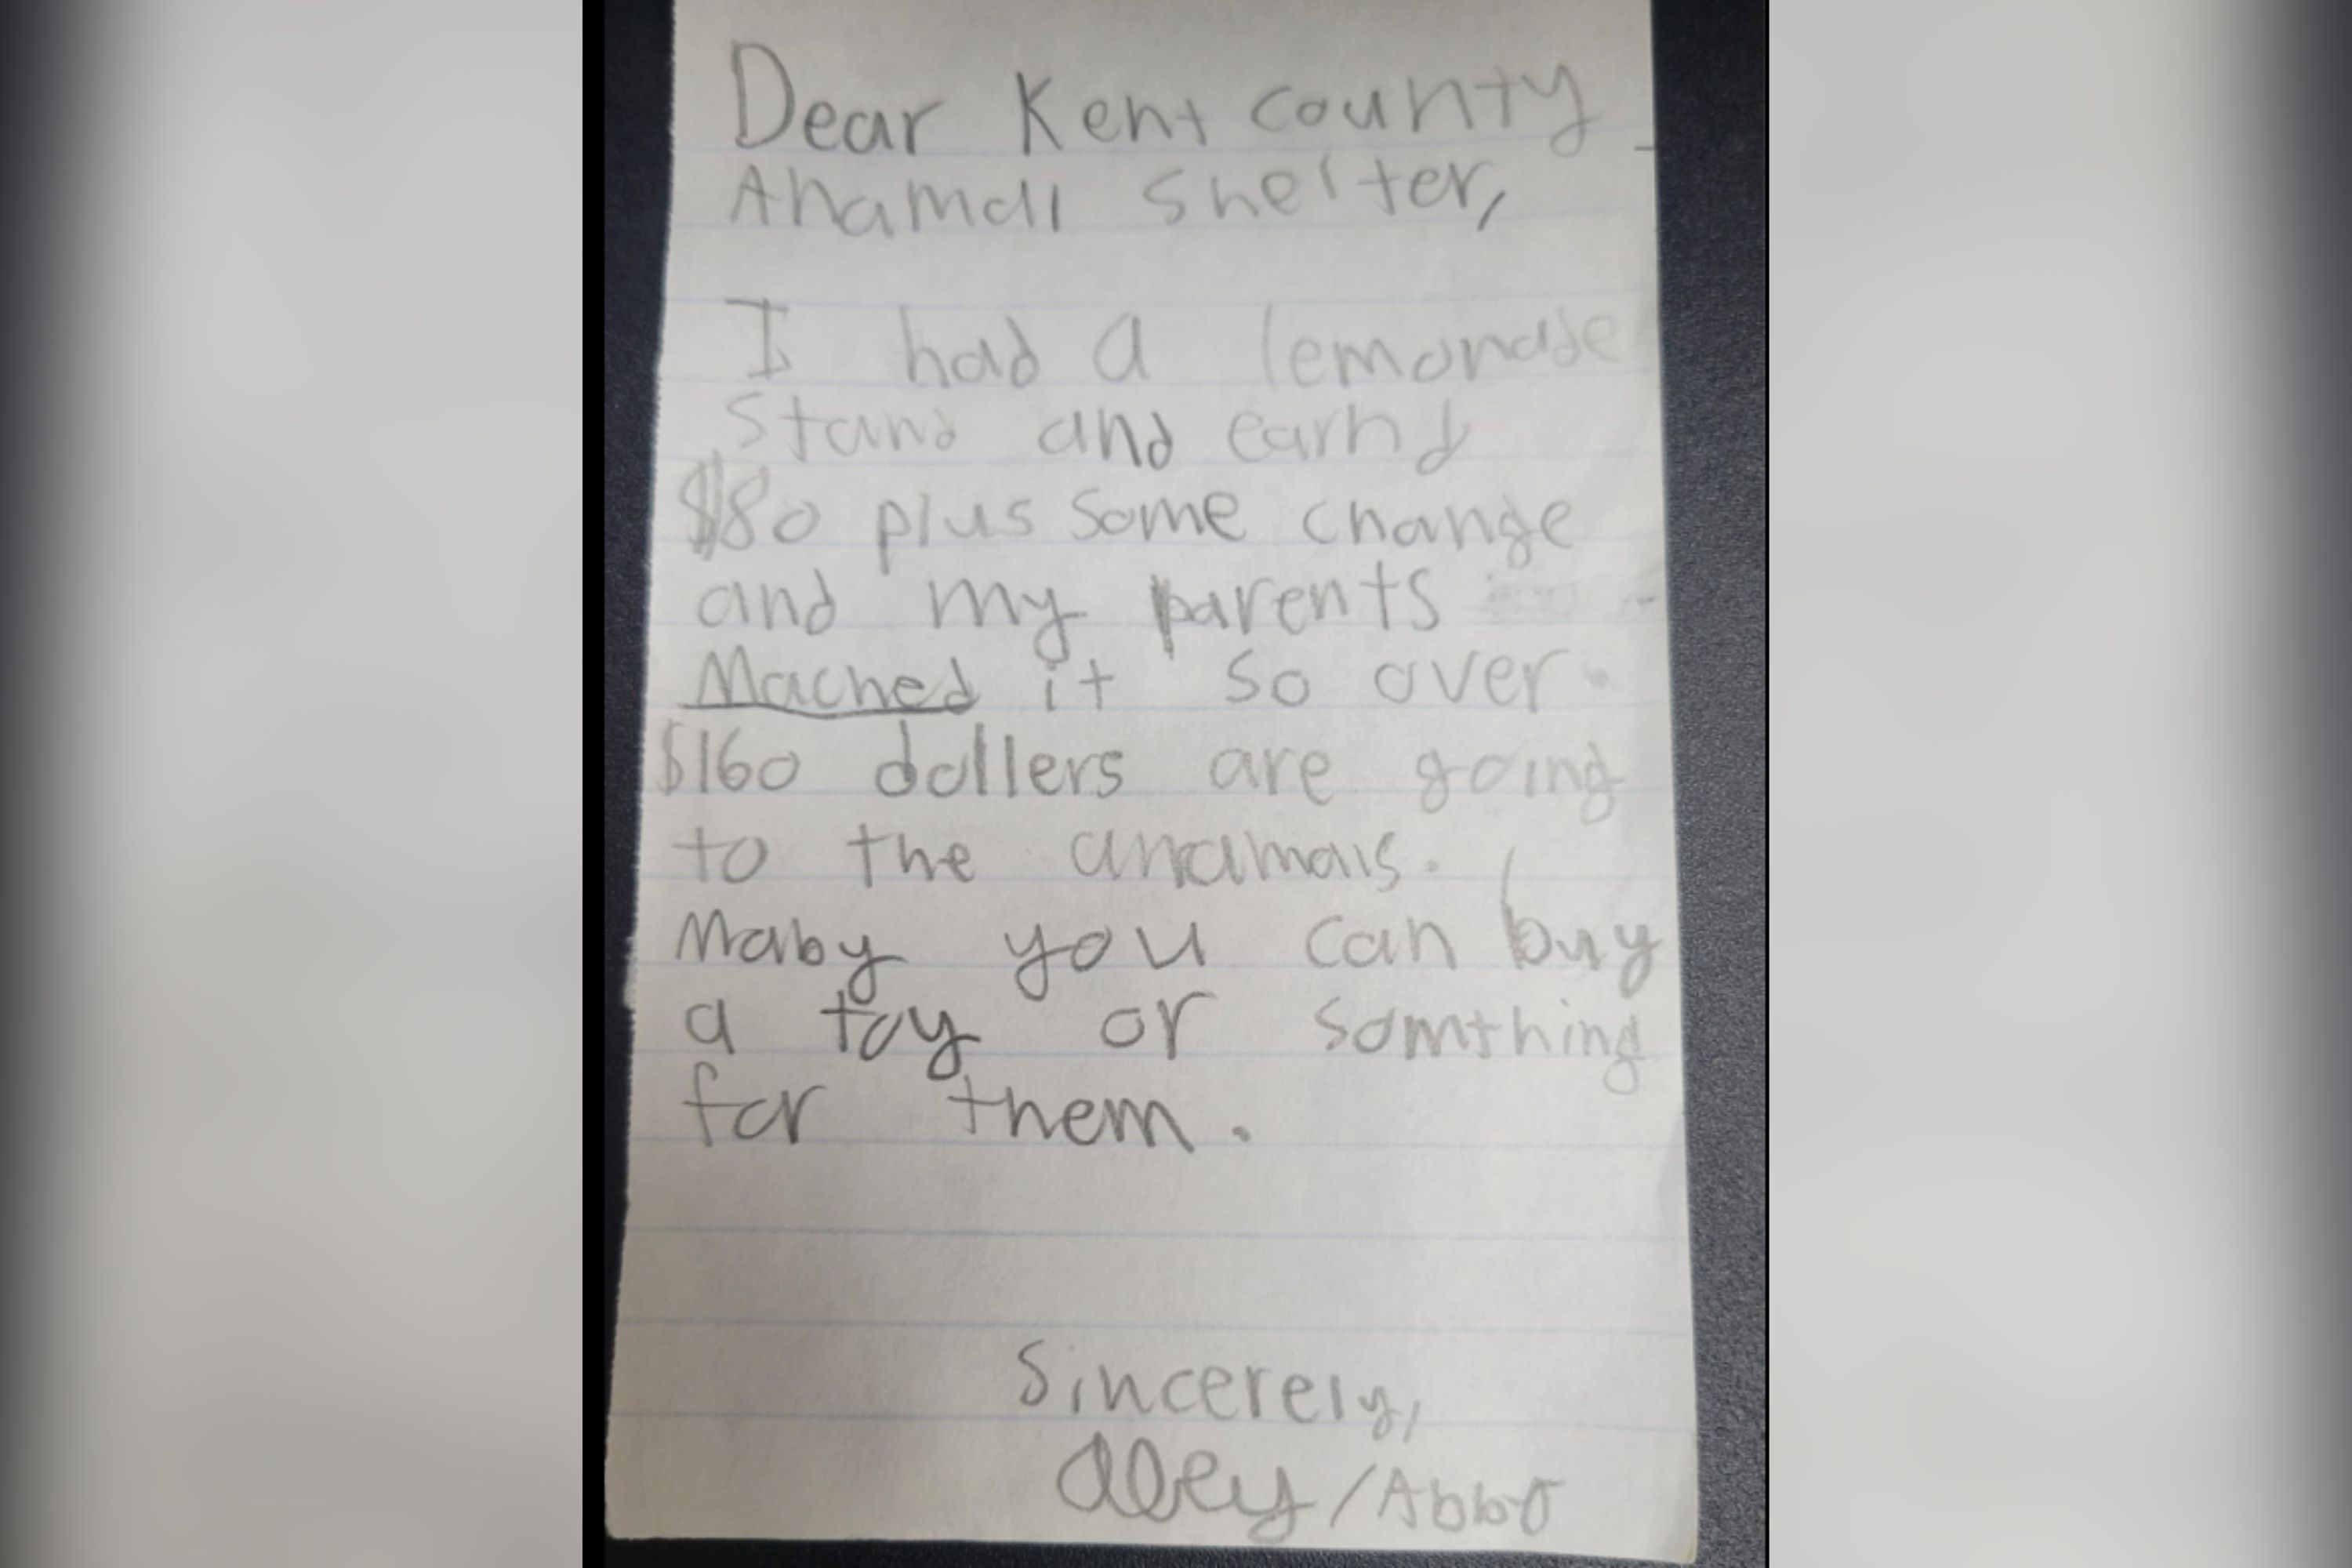 Dear Kent county
Anamal Shelter,
I had a lemonade
Stand and earnd
$80 plus some change
and my parents
Mached it so over
$160 dollers are going
to the anamals.
Maby you can buy
a toy or somthing
for them.
Sincerely,